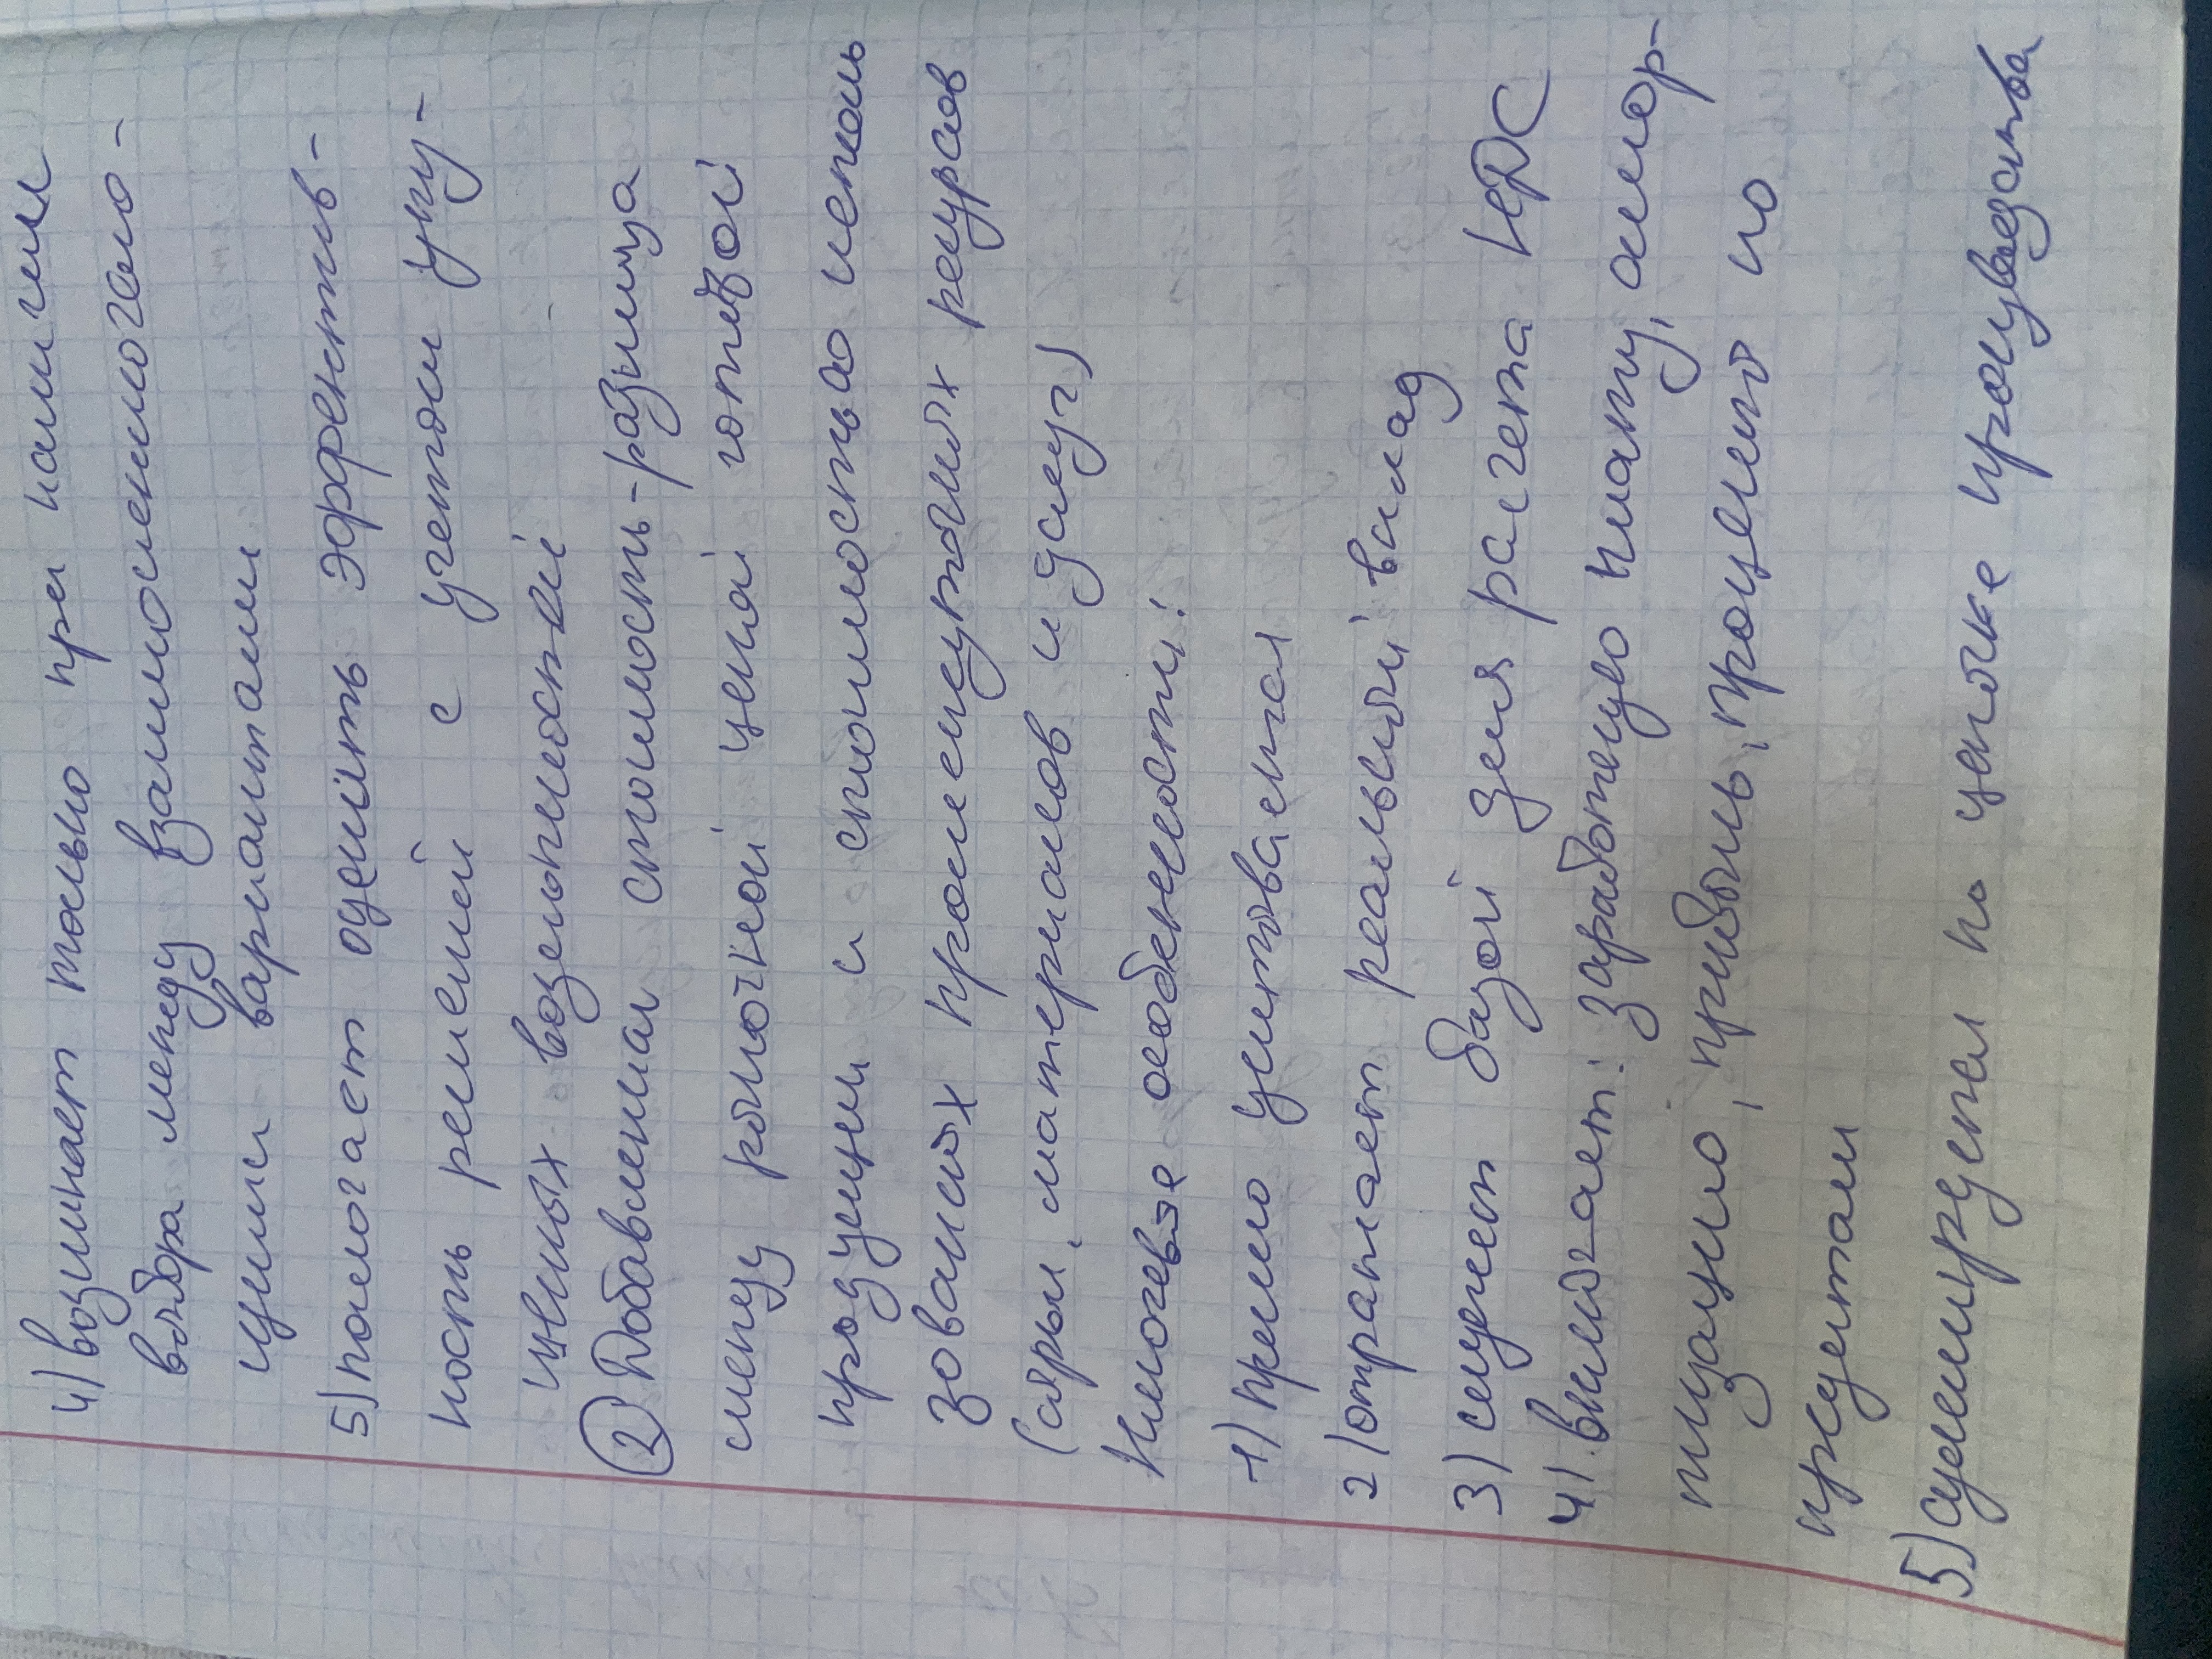 4) возникает только при наличии
выбора между взаимоисключаю-
щими вариантами
5) помогает оценить эффектив-
ность решений с учетом упу-
щенных возможностей
② Добавленная стоимость - разница
между рыночной ценой готовой
продукции и стоимостью исполь
зованных промежуточных ресурсов
(сырья, материалов и услуг)
Ключевые особенности:
1) прямо учитывается
2) отражает реальный вклад
3) служит базой для расчета НДС
4) включает: заработную плату, амор-
тизацию, прибыль, проценты по
кредитам
5) суммируется по цепочке производства